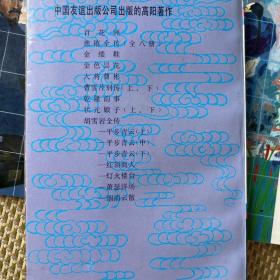 中国友谊出版公司出版的高阳著作
百花洲
慈禧全传(全八册)
金缕鞋
金色昙花
大将曹彬
曹雪芹别传(上、下)
乾隆韵事
状元娘子(上、下)
胡雪岩全传
—平步青云(上)
—平步青云(中)
—平步青云(下)
—红顶商人
—灯火楼台
—萧瑟洋场
—烟消云散